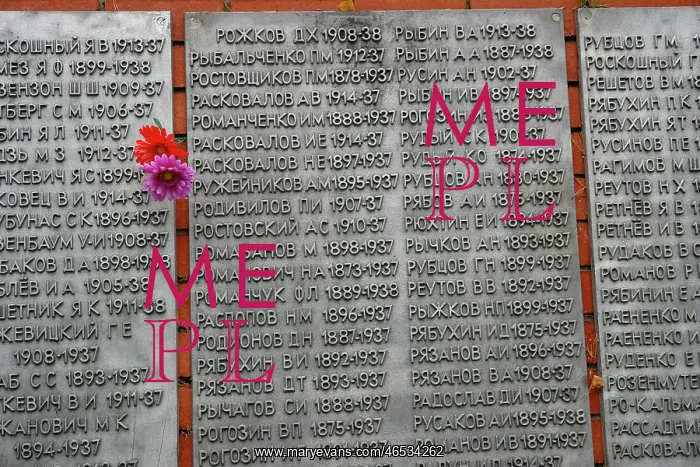 СКОШНЫЙ Я В 1913-37
МЕЗ Я Ф 1899-1938
ВЕНЗОН Ш Ш 1909-37
ЛБЕРГ С М 1906-37
БИН Я Л 1911-37
ДЗЬ М З 1912-37
НКЕВИЧ Я С 1899-1
КОВЕЦ В И 1914-37
УБУНАС С К 1896-1937
ЗЕНБАУМ У И 1908-37
БАКОВ Д А 1898-1937
БЛЁВ И А 1905-38
ШЕТНИК Я К 1911-38
ЖЕВИЦКИЙ Г Е
1908-1937
АБ С С 1893-1937
ТКЕВИЧ В И 1911-37
ЖАНОВИЧ М К
1894-1937
РОЖКОВ Д Х 1908-38
РЫБАЛЬЧЕНКО П М 1912-37
РОСТОВЩИКОВ П М 1878-1937
РАСКОВАЛОВ А В 1914-37
РОМАНЧЕНКО И М 1888-1937
РАСКОВАЛОВ И Е 1914-37
РАСКОВАЛОВ Н Е 1897-1937
РУЖЕЙНИКОВ А М 1895-1937
РОДИВИЛОВ П И 1907-37
РОСТОВСКИЙ А С 1910-37
М 1898-1937
ВИЧ Н А 1873-1937
РОМАЩУК Ф Л 1889-1938
Н М 1896-1937
Д Н 1887-1937
РЯБУХИН В И 1892-1937
РЯЗАНОВ Д Т 1893-1937
РЫЧАГОВ С И 1888-1937
РОГОЗИН В П 1875-1937
РОГОЗИН
РЫБИН В А 1913-38
РЫБИН А А 1887-1938
РУСИН А Н 1902-37
РЫБИН И В 1897-1937
1888
1902-37
1937
1937
РЯБ
РЮХИН Е И
РЫЧКОВ А Н 1893-1937
РУБЦОВ Г Н 1899-1937
РЕУТОВ В В 1892-1937
РЫЖКОВ Н П 1899-1937
РЯБУХИН И Д 1875-1937
РЯЗАНОВ А И 1896-1937
РЯЗАНОВ В А 1908-37
РАДОСЛАВ Д И 1907-37
РУСАКОВ А И 1895-1938
РОМАНОВ И В 1891-1937
РУБЦОВ Г М
РОСКОШНЫЙ Г
РЕШЕТОВ В М
РЯБУХИН П К
РЯБУХИН Я Т
РУСИНОВ П Е
РАГИМОВ М
РЕУТОВ Н Х
РЕТНЁВ Я В
РЕТНЕВ И В
РУДАКОВ В
РОМАНОВ И
РЯБИНИН Е
РАЕНЕНКО М
РАЕНЕНКО И
РУДЕНКО Е
РОЗЕНМУТ
РО-КАЛЬМ
РАССАДНИ
РАСКОВАЛОВ
ME
PL
ME
PL
www.maryevans.com/46534262